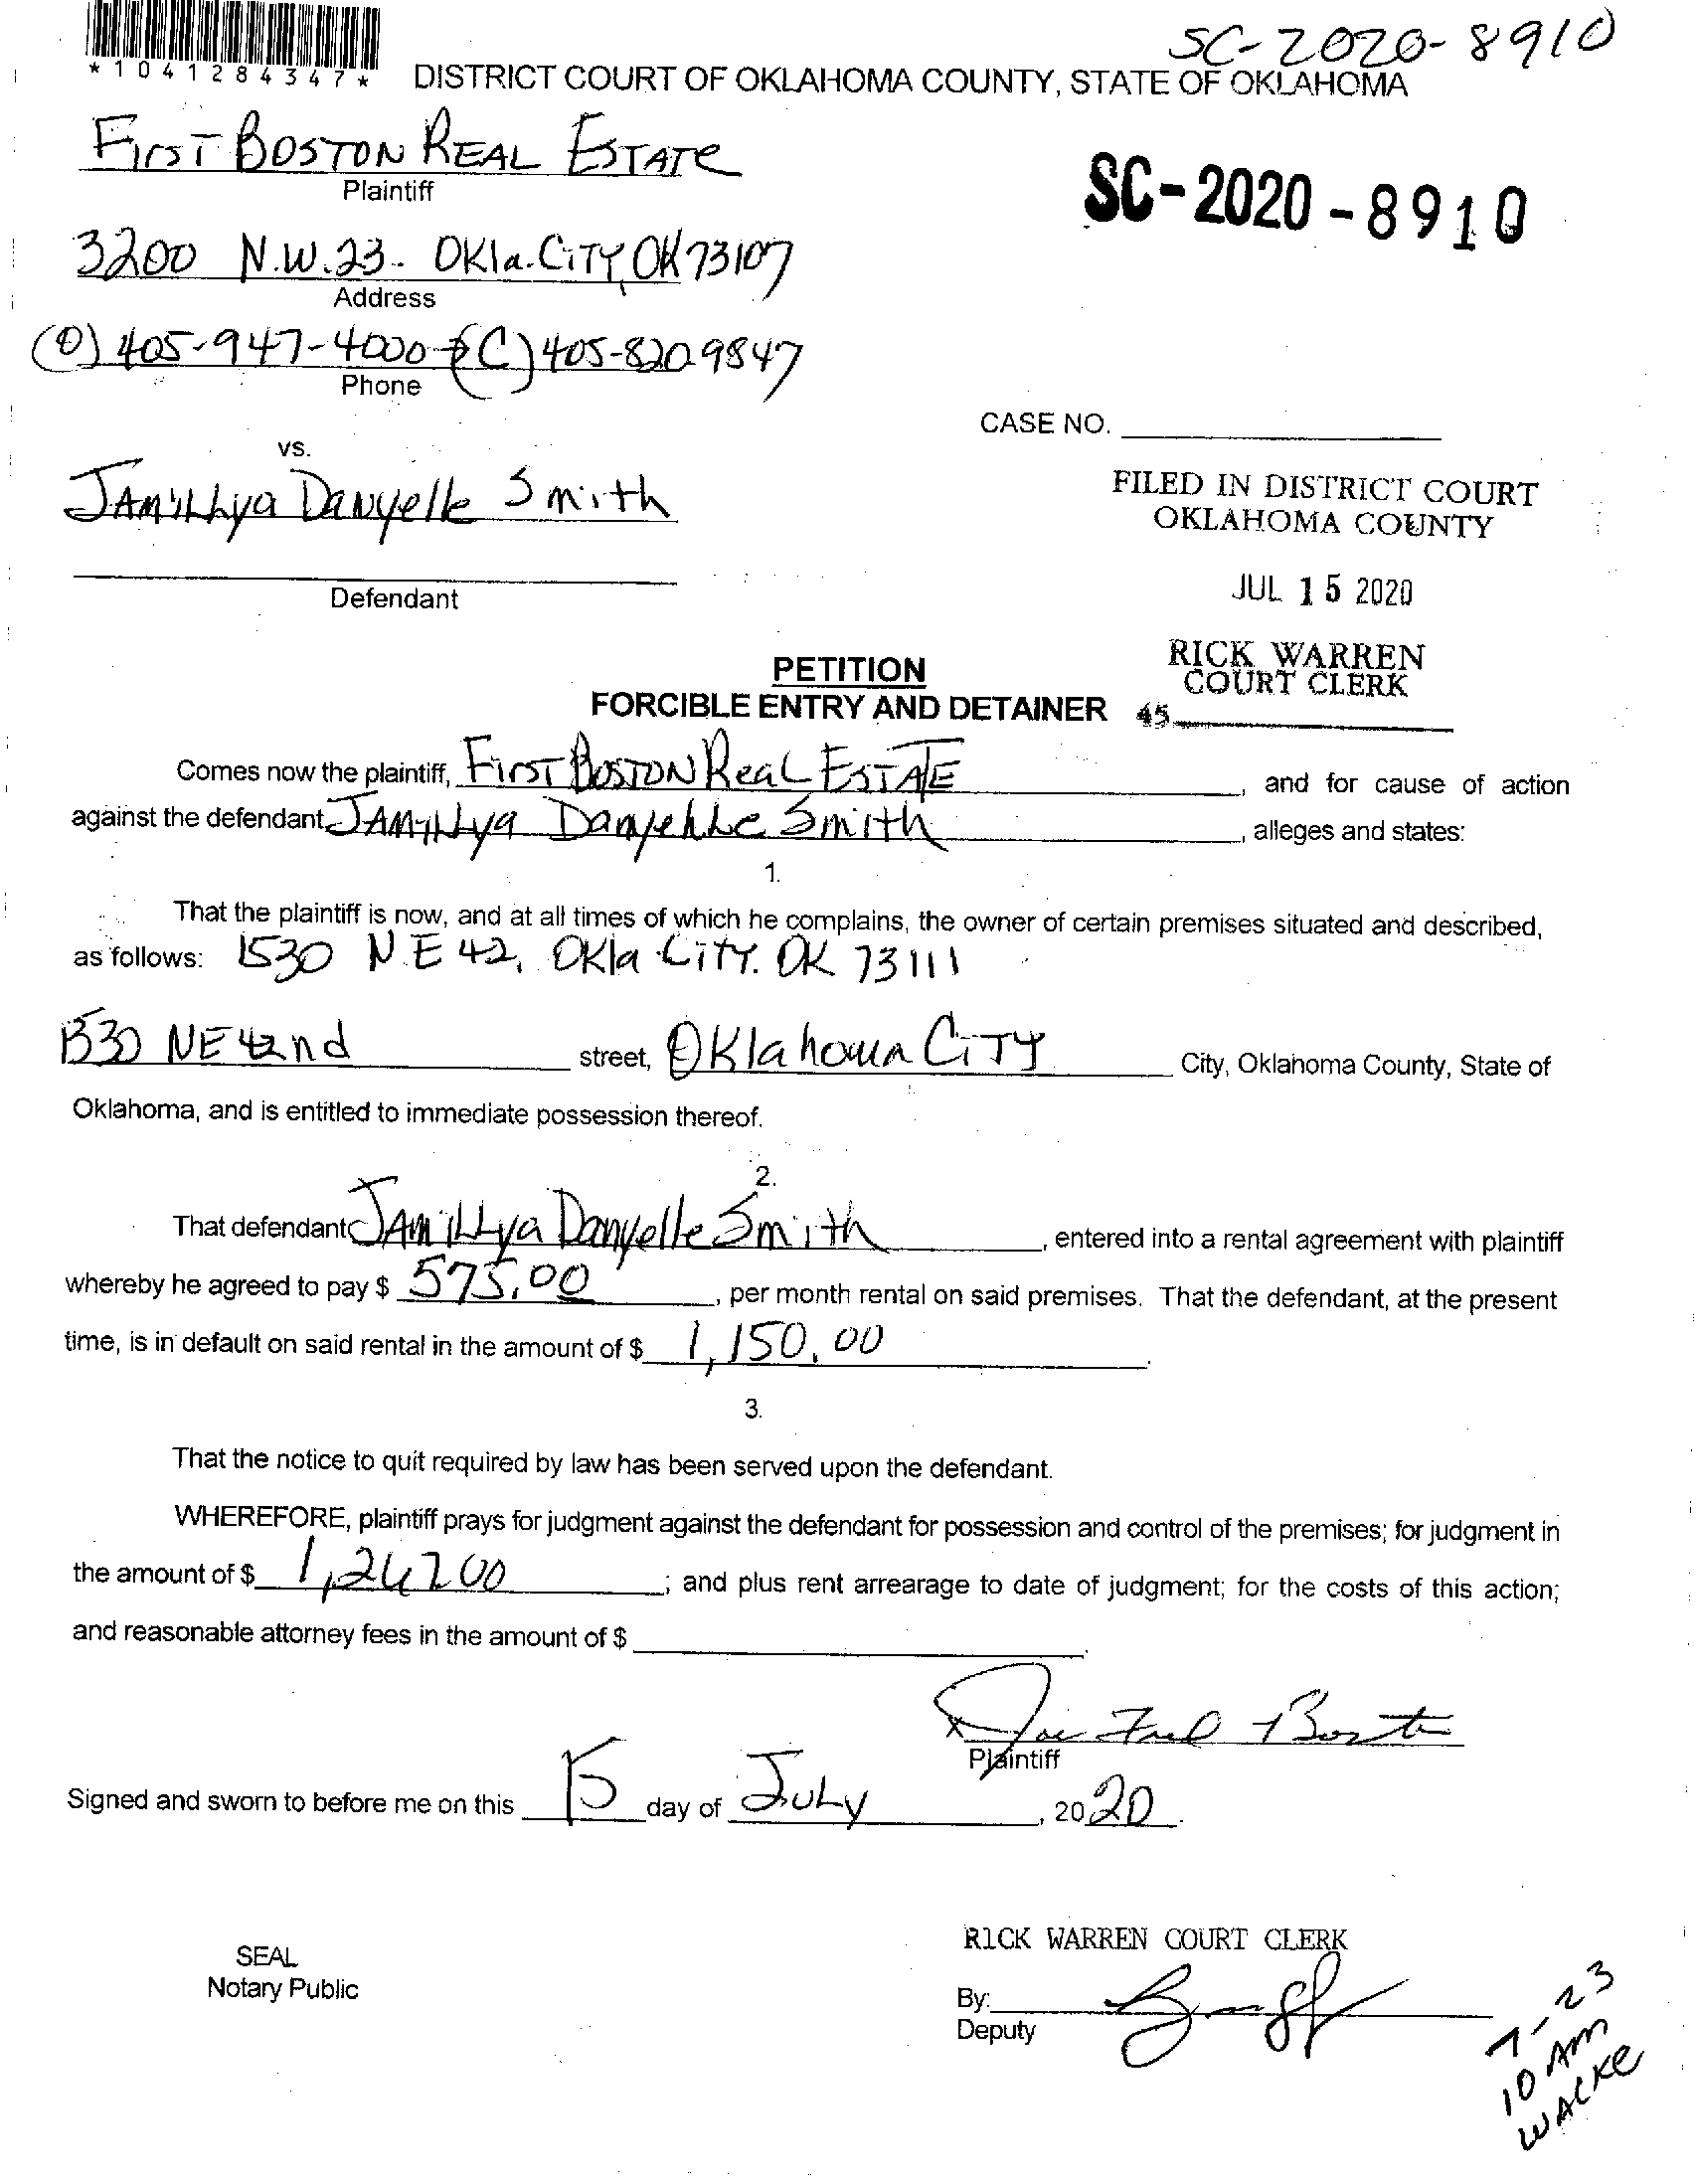 SC-2020-8910
*1041284347*
DISTRICT COURT OF OKLAHOMA COUNTY, STATE OF OKLAHOMA
FIrST BOSTON REAL ESTATe
Plaintiff
SC-2020-8910
3200 N.W.23. OKla.CiTY, OK 73107
Address
(O) 405-947-4000 (C) 405-820 9847
Phone
CASE NO.
vs.
JAmiLLya Danyelle Smith
Defendant
FILED IN DISTRICT COURT
OKLAHOMA COUNTY
JUL 15 2020
RICK WARREN
COURT CLERK
45
PETITION
FORCIBLE ENTRY AND DETAINER
Comes now the plaintiff, FirST BOSTON ReaL ESTATE, and for cause of action
against the defendant JAMiLLya DanyeLLe Smith, alleges and states:
1.
That the plaintiff is now, and at all times of which he complains, the owner of certain premises situated and described,
as follows: 1530 N.E 42, OKla CiTY. OK 73111
1530 NE 42nd street, OKlahoma CiTY City, Oklahoma County, State of
Oklahoma, and is entitled to immediate possession thereof.
2.
That defendant JAmiLLya Danyelle Smith, entered into a rental agreement with plaintiff
whereby he agreed to pay $ 575.00, per month rental on said premises. That the defendant, at the present
time, is in default on said rental in the amount of $ 1,150.00.
3.
That the notice to quit required by law has been served upon the defendant.
WHEREFORE, plaintiff prays for judgment against the defendant for possession and control of the premises; for judgment in
the amount of $ ; and plus rent arrearage to date of judgment; for the costs of this action;
and reasonable attorney fees in the amount of $ .
x Joe Fred
Plaintiff
Signed and sworn to before me on this 15 day of JuLy, 2020.
SEAL
Notary Public
RICK WARREN COURT CLERK
By:
Deputy
7-23
10 Am
WALKE